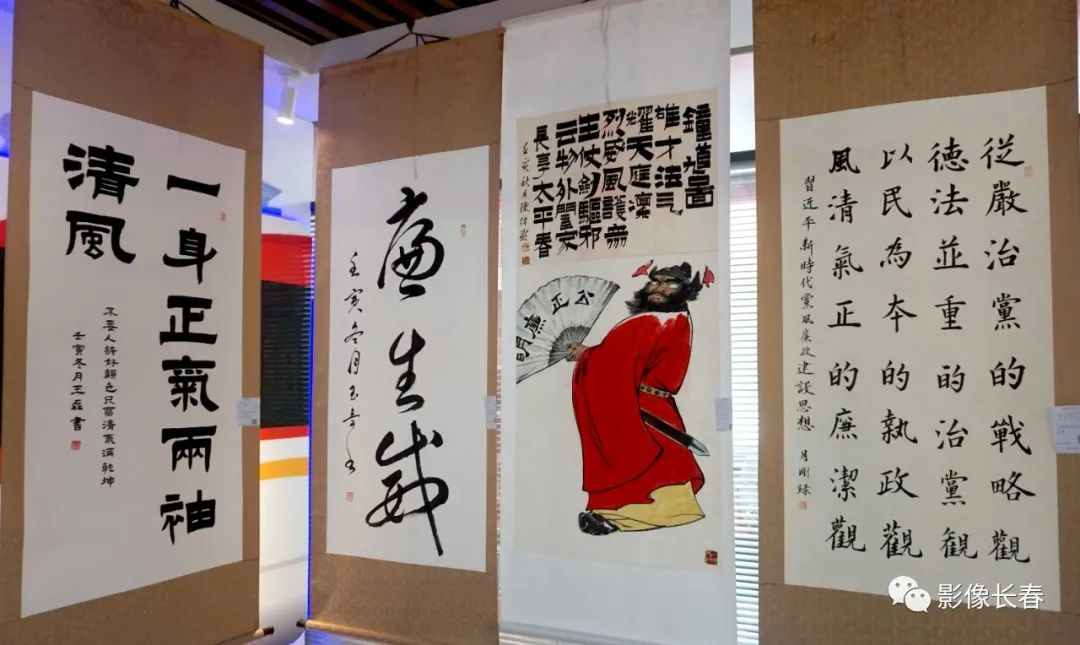 一身正氣兩袖
清風
不要人誇好顏色只留清氣滿乾坤
壬寅冬月王磊書
廉生威
壬寅冬月
鐘馗圖
雄才法气
耀天應凜
烈風護
生仗劍驅邪
云物外闔家
長享太平春
壬寅秋月陳
公正廉明
從嚴治黨的戰略觀
德法並重的治黨観
以民為本的執政觀
風清氣正的廉潔觀
習近平新時代黨風廉政建設思想
月剛録
影像长春